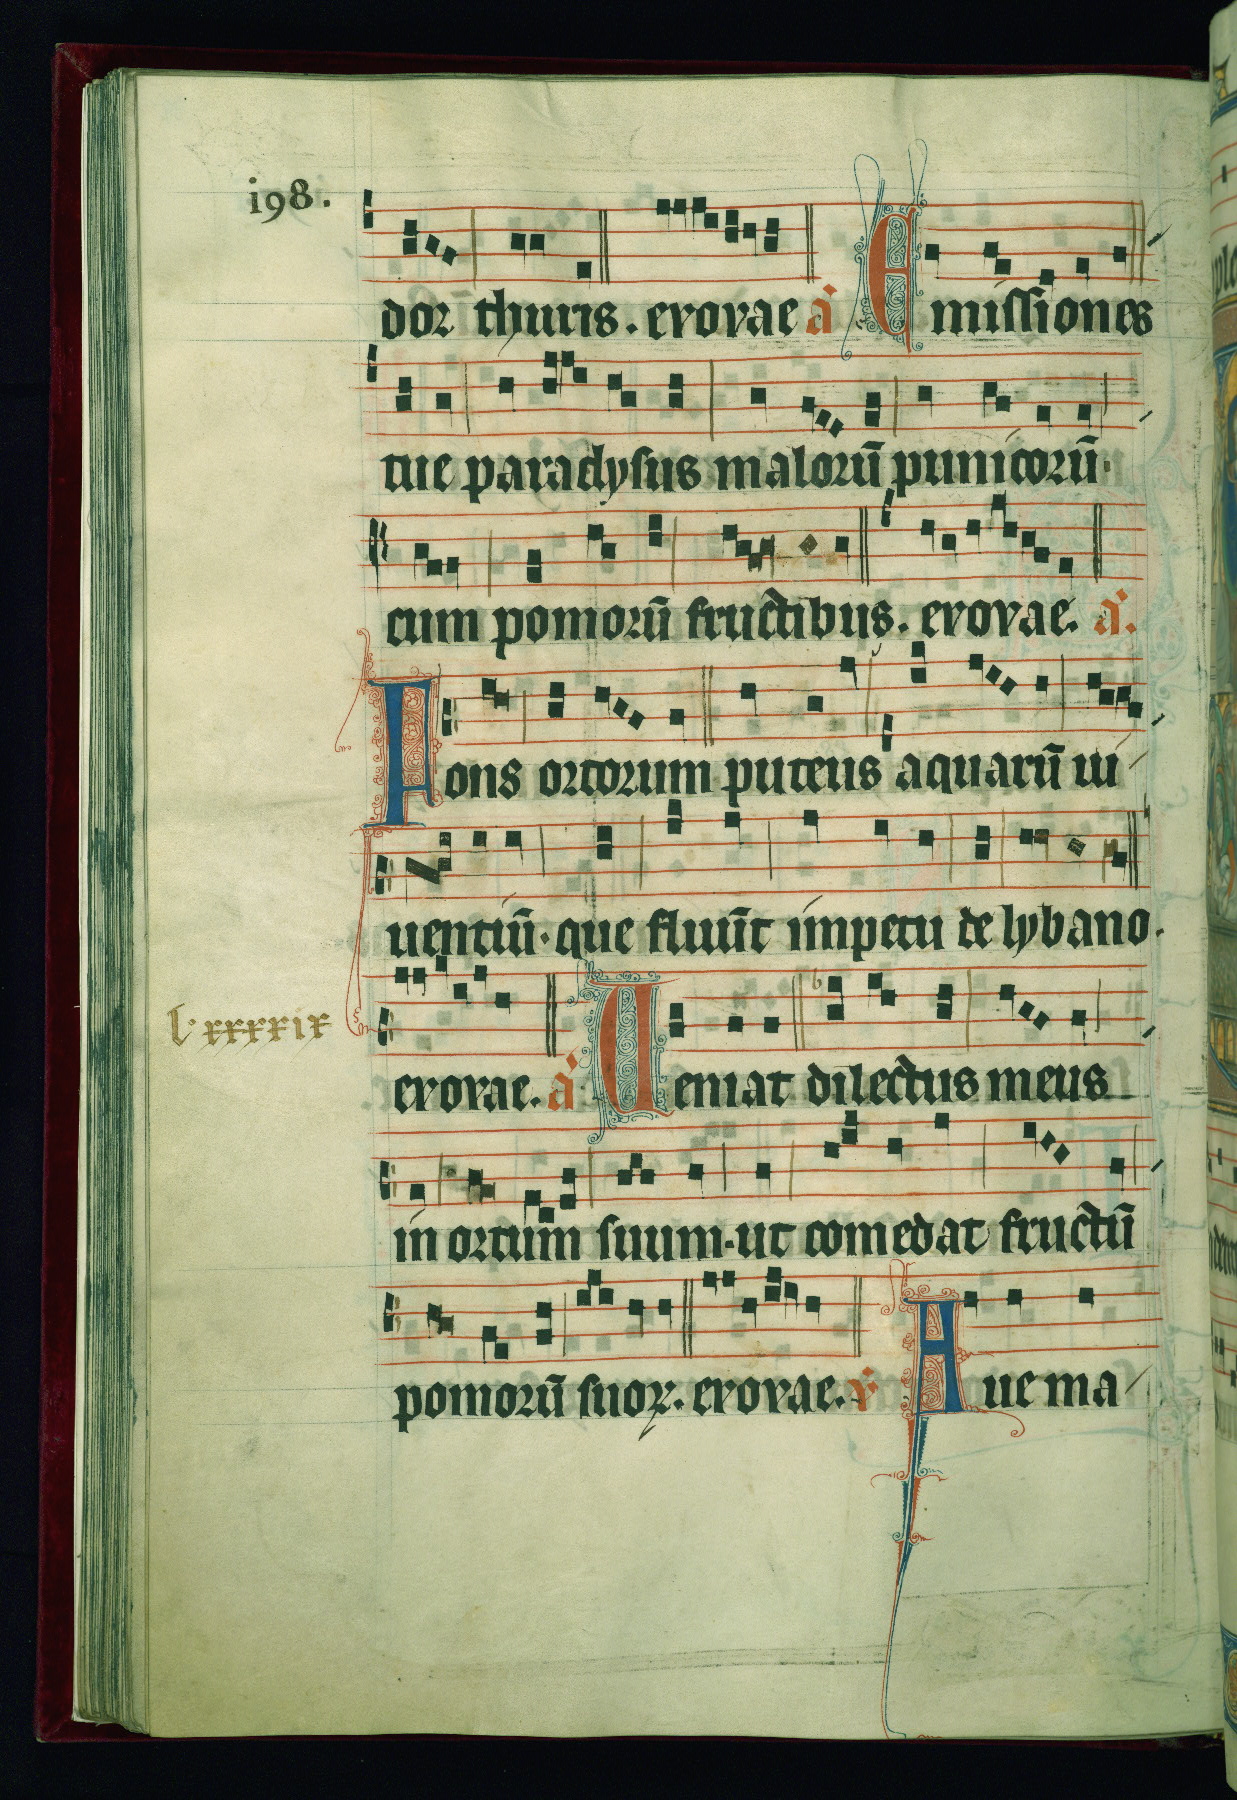 i98.
dor thuris. evovae a Emissiones
tue paradysus malorū punicorū.
cum pomorū fructibus. evovae. a.
Fons ortorum puteus aquarū ui
uentiū. que fluūt impetu de lybano.
l. xxxxix
evovae. a Ueniat dilectus meus
in ortum suum. ut comedat fructū
pomorū suoꝝ. evovae. v Aue ma